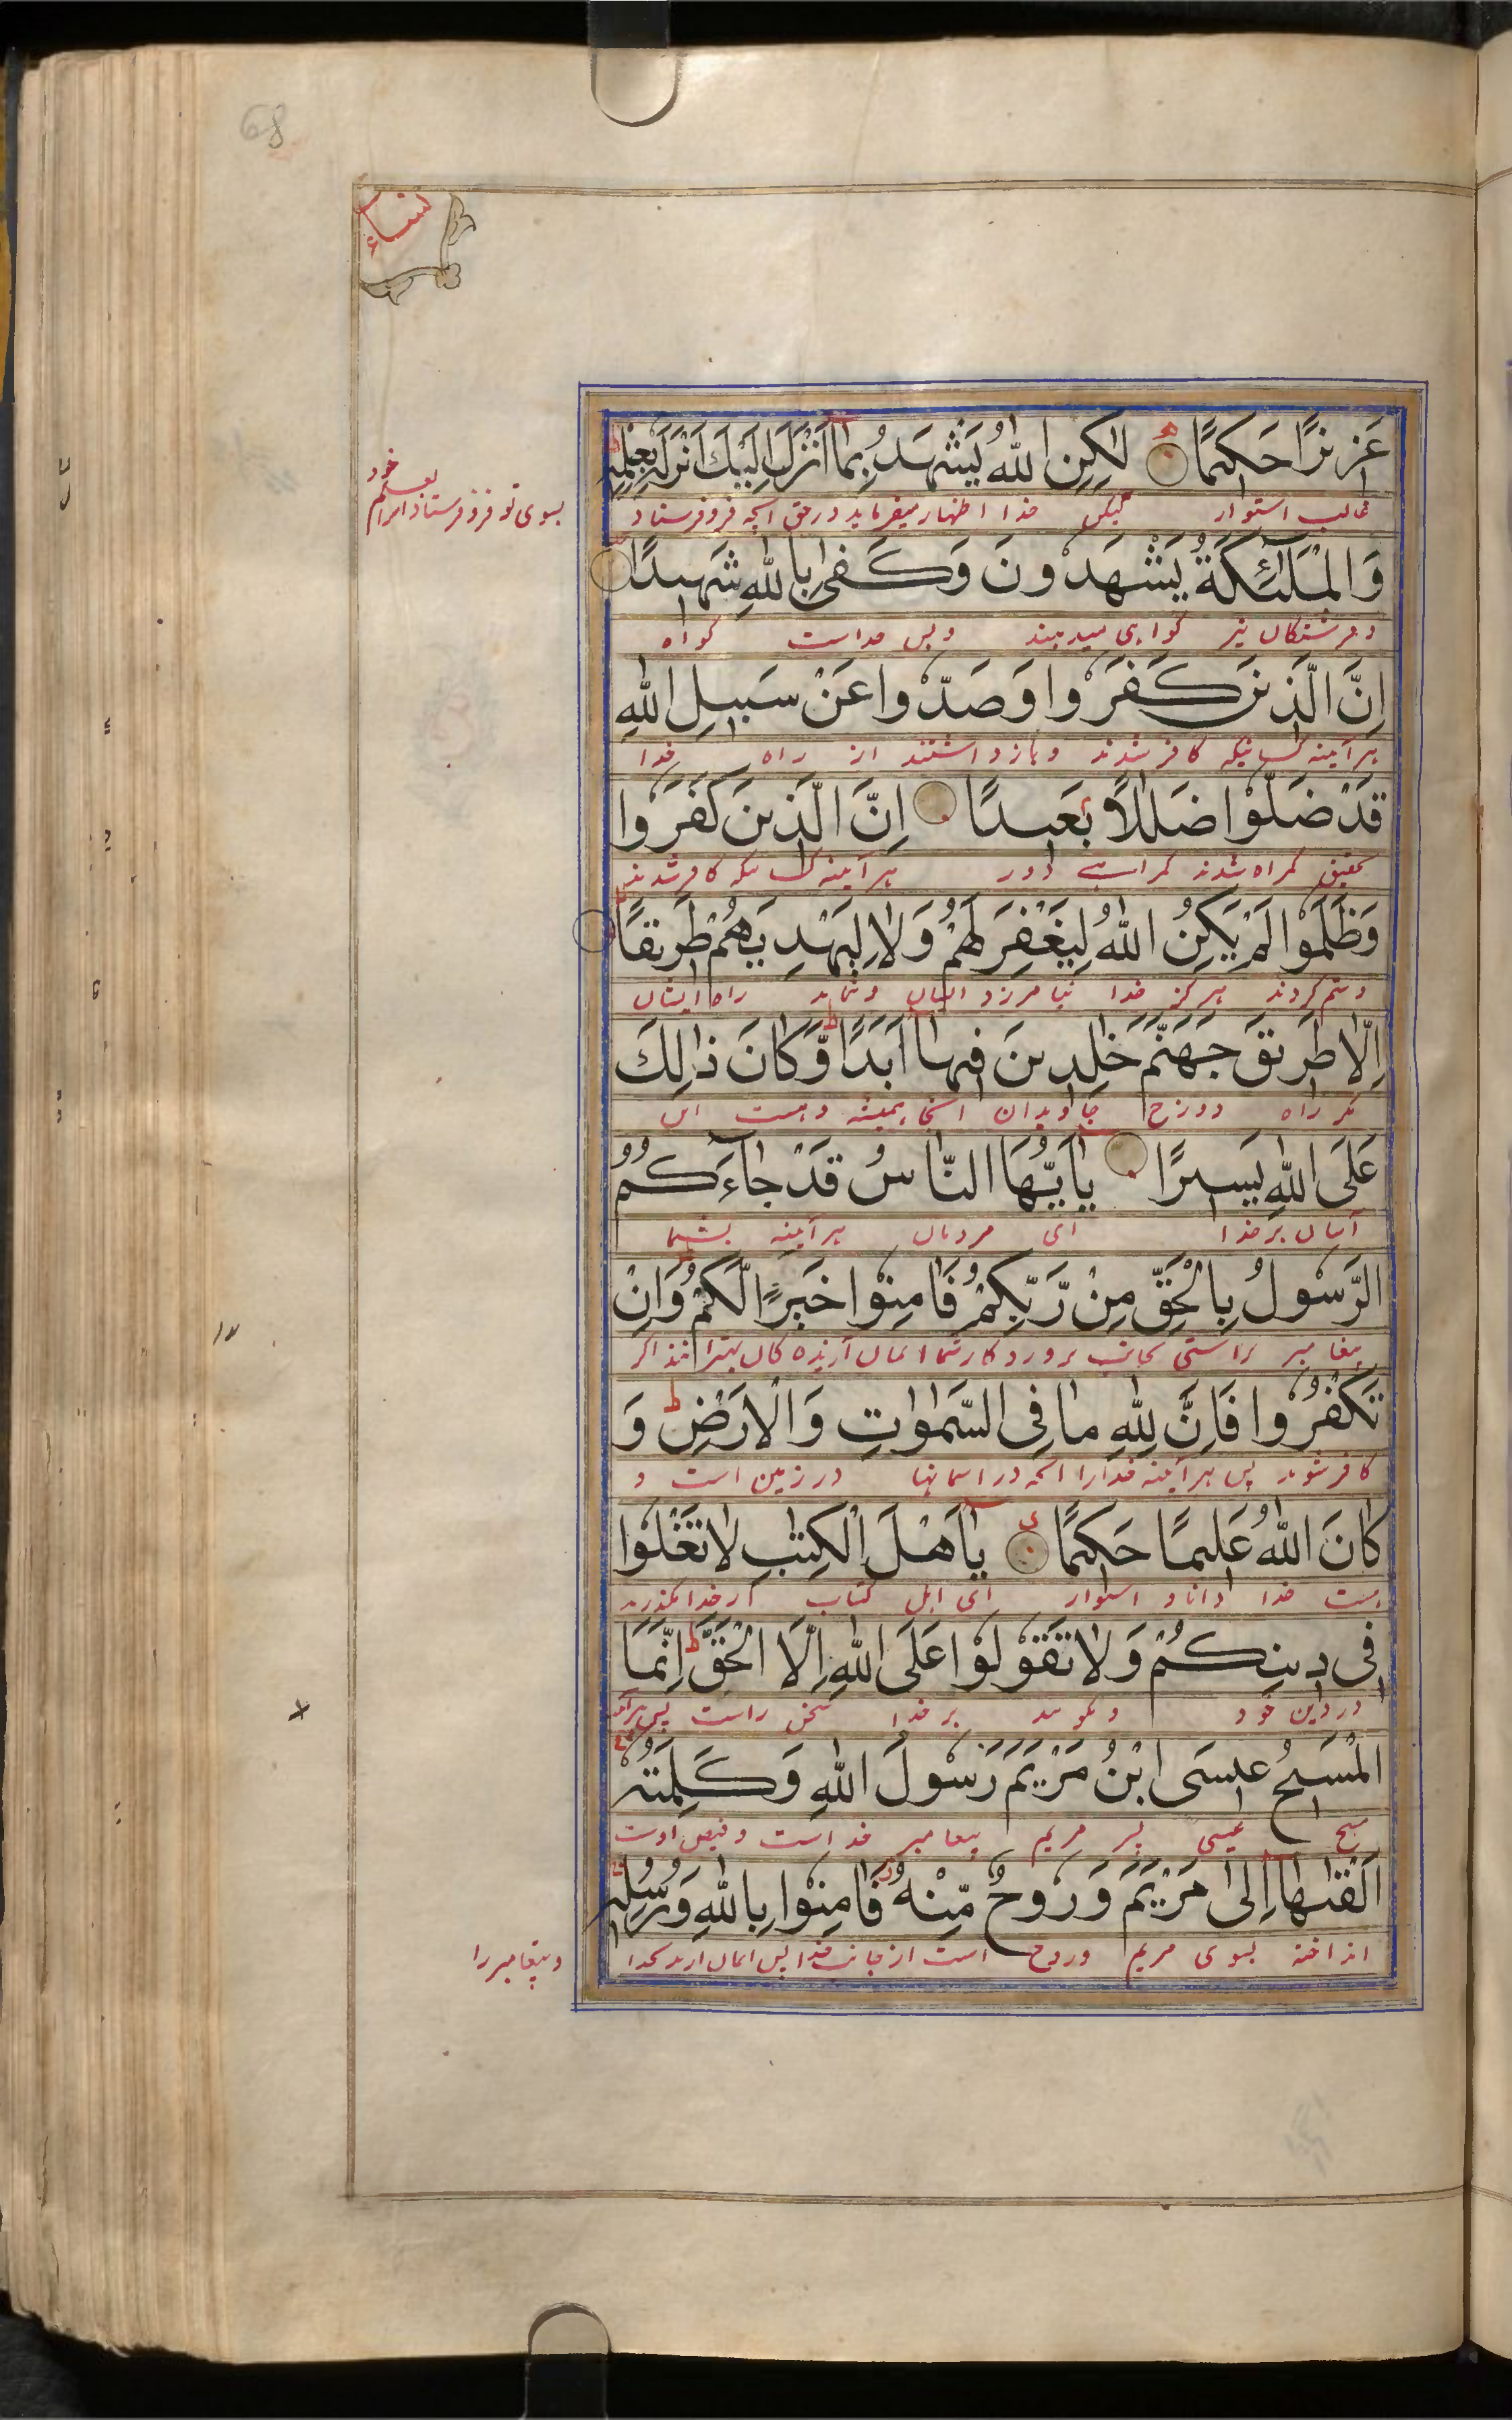 68
نساء
عَزِيزًا حَكِيمًا لٰكِنِ اللّٰهُ يَشْهَدُ بِمَا أَنْزَلَ إِلَيْكَ أَنْزَلَهُ بِعِلْمِهِ
غالب استوار لیکن خدا اظهار میفرماید در حق آنچه فروفرستاد
بسوی تو فروفرستاد آنرا بعلم خود
وَالْمَلٰئِكَةُ يَشْهَدُونَ وَكَفٰى بِاللّٰهِ شَهِيدًا
و فرشتگان نیز گواهی میدهند و بس خداست گواه
إِنَّ الَّذِينَ كَفَرُوا وَصَدُّوا عَنْ سَبِيلِ اللّٰهِ
هر آئینه کسانیکه کافر شدند و بازداشتند از راه خدا
قَدْ ضَلُّوا ضَلٰلًا بَعِيدًا إِنَّ الَّذِينَ كَفَرُوا
تحقیق گمراه شدند گمراهی دور هر آئینه کسانیکه کافر شدند
وَظَلَمُوا لَمْ يَكُنِ اللّٰهُ لِيَغْفِرَ لَهُمْ وَلَا لِيَهْدِيَهُمْ طَرِيقًا
و ستم کردند هرگز خدا نیامرزد ایشان و ننماید راه ایشان
إِلَّا طَرِيقَ جَهَنَّمَ خٰلِدِينَ فِيهَا أَبَدًا وَّكَانَ ذٰلِكَ
مگر راه دوزخ جاویدان آنجا همیشه و هست این
عَلَى اللّٰهِ يَسِيرًا يَا أَيُّهَا النَّاسُ قَدْ جَاءَكُمُ
آسان بر خدا ای مردمان هر آئینه بشما
الرَّسُولُ بِالْحَقِّ مِنْ رَّبِّكُمْ فَآمِنُوا خَيْرًا لَّكُمْ وَإِنْ
پیغامبر براستی از جانب پروردگار شما ایمان آرید
تَكْفُرُوا فَإِنَّ لِلّٰهِ مَا فِى السَّمٰوٰتِ وَالْأَرْضِ وَ
کافر شوید پس هر آئینه خدارا آنچه در آسمانها در زمین است و
كَانَ اللّٰهُ عَلِيمًا حَكِيمًا يَا أَهْلَ الْكِتٰبِ لَا تَغْلُوا
هست خدا دانا و استوار ای اهل کتاب از حد مگذرید
فِى دِينِكُمْ وَلَا تَقُولُوا عَلَى اللّٰهِ إِلَّا الْحَقَّ إِنَّمَا
در دین خود و مگوئید بر خدا سخن راست
الْمَسِيحُ عِيسَى ابْنُ مَرْيَمَ رَسُولُ اللّٰهِ وَكَلِمَتُهُ
مسیح عیسی پسر مریم پیغامبر خداست
أَلْقٰىهَا إِلٰى مَرْيَمَ وَرُوحٌ مِّنْهُ فَآمِنُوا بِاللّٰهِ وَرُسُلِهِ
انداخته بسوی مریم و روح است از جانب خدا پس ایمان آرید بخدا
و پیغامبر را